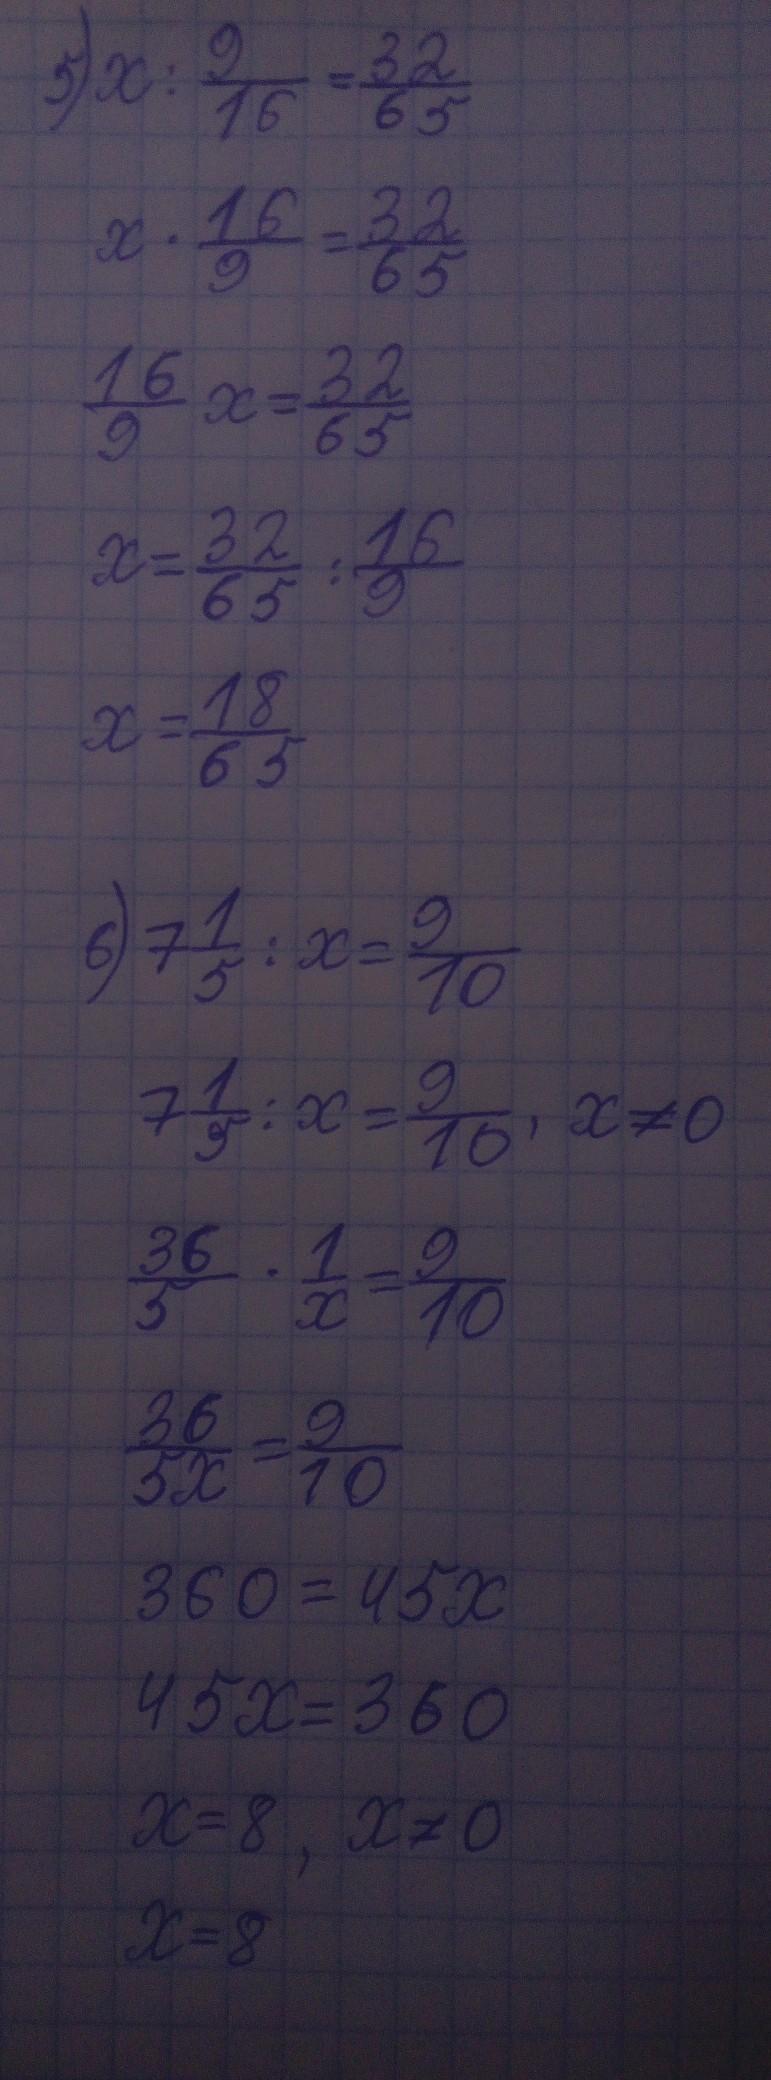 5) x : 9/16 = 32/65
x · 16/9 = 32/65
16/9 x = 32/65
x = 32/65 : 16/9
x = 18/65
6) 7 1/5 : x = 9/10
7 1/5 : x = 9/10, x ≠ 0
36/5 · 1/x = 9/10
36/5x = 9/10
360 = 45x
45x = 360
x = 8, x ≠ 0
x = 8